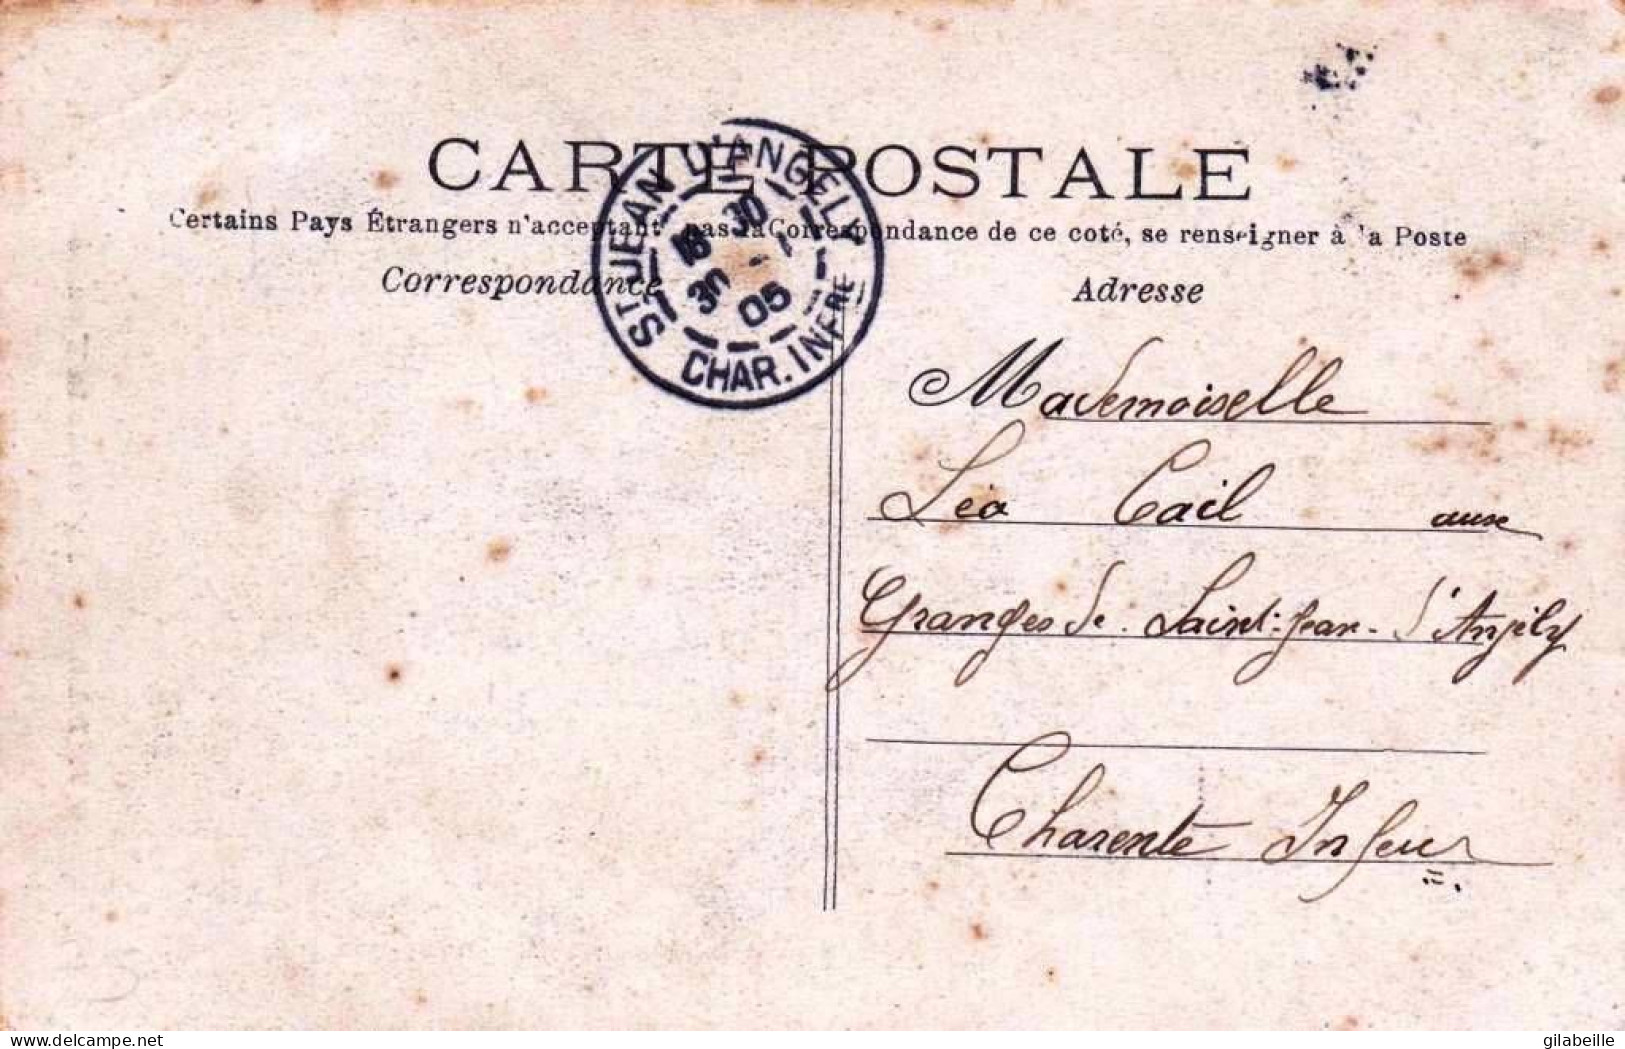 CARTE POSTALE
Certains Pays Étrangers n'acceptant pas la Correspondance de ce coté, se renseigner à la Poste
Correspondance
Adresse
ST JEAN D'ANGELY
18 30
30 - 1
05
CHAR. INFRE
Mademoiselle
Léa Cail aux
Granges de Saint-Jean-d'Angély
Charente Infeur
delcampe.net
gilabeille